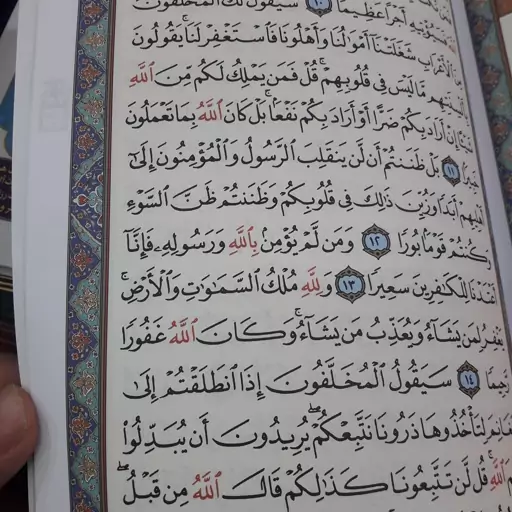 فَسَيُؤْتِيهِ أَجْرًا عَظِيمًا ١٠ سَيَقُولُ لَكَ الْمُخَلَّفُونَ
مِنَ الْأَعْرَابِ شَغَلَتْنَا أَمْوَالُنَا وَأَهْلُونَا فَاسْتَغْفِرْ لَنَا يَقُولُونَ
بِأَلْسِنَتِهِم مَّا لَيْسَ فِي قُلُوبِهِمْ قُلْ فَمَن يَمْلِكُ لَكُم مِّنَ اللَّهِ
شَيْئًا إِنْ أَرَادَ بِكُمْ ضَرًّا أَوْ أَرَادَ بِكُمْ نَفْعًا بَلْ كَانَ اللَّهُ بِمَا تَعْمَلُونَ
خَبِيرًا ١١ بَلْ ظَنَنتُمْ أَن لَّن يَنقَلِبَ الرَّسُولُ وَالْمُؤْمِنُونَ إِلَىٰ
أَهْلِيهِمْ أَبَدًا وَزُيِّنَ ذَٰلِكَ فِي قُلُوبِكُمْ وَظَنَنتُمْ ظَنَّ السَّوْءِ
وَكُنتُمْ قَوْمًا بُورًا ١٢ وَمَن لَّمْ يُؤْمِن بِاللَّهِ وَرَسُولِهِ فَإِنَّا
أَعْتَدْنَا لِلْكَافِرِينَ سَعِيرًا ١٣ وَلِلَّهِ مُلْكُ السَّمَاوَاتِ وَالْأَرْضِ
يَغْفِرُ لِمَن يَشَاءُ وَيُعَذِّبُ مَن يَشَاءُ وَكَانَ اللَّهُ غَفُورًا
رَّحِيمًا ١٤ سَيَقُولُ الْمُخَلَّفُونَ إِذَا انطَلَقْتُمْ إِلَىٰ
مَغَانِمَ لِتَأْخُذُوهَا ذَرُونَا نَتَّبِعْكُمْ يُرِيدُونَ أَن يُبَدِّلُوا
اللَّهِ قُل لَّن تَتَّبِعُونَا كَذَٰلِكُمْ قَالَ اللَّهُ مِن قَبْلُ